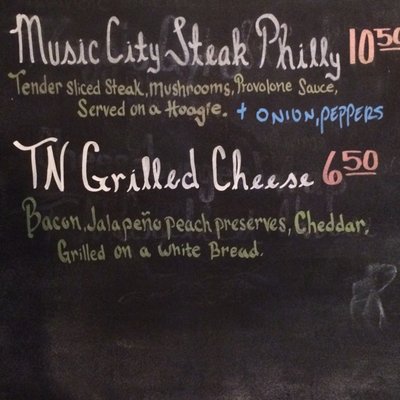 Music City Steak Philly 10.50
Tender Sliced Steak, Mushrooms, Provolone Sauce,
Served on a Hoagie. + ONION, PEPPERS
TN Grilled Cheese 6.50
Bacon, Jalapeño peach preserves, Cheddar,
Grilled on a White Bread.